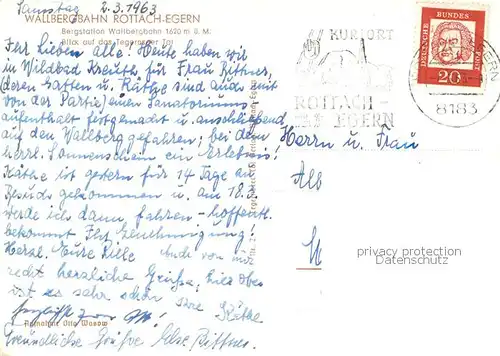 Samstag 2.3.1963
WALLBERGBAHN ROTTACH-EGERN
Bergstation Wallbergbahn 1620 m ü. M.
Blick auf das Tegernseer Tal
Ihr Lieben alle! Heute haben wir
in Wildbad Kreuth für Frau Bittner,
(deren Gatten u. Käthe sind auch mit
von der Partie) einen Sanatoriums-
aufenthalt festgemacht u. anschließend
auf den Wallberg gefahren; bei dem
herrl. Sonnenschein ein Erlebnis!
Käthe ist gestern für 14 Tage an
Besuch gekommen u. am 18.
werde ich dann fahren - hoffentl.
bekommt Ihr Genehmigung!
Herzl. Eure Lille Auch von mir
recht herzliche Grüße; hier oben
ist es sehr schön Eure Käthe
Aufnahme Otto Wasow
Freundliche Grüße Else Bittner.
KURORT
ROTTACH-
EGERN
DEUTSCHE BUNDESPOST
20
8183
Herrn u. Frau
Alb
privacy protection
Datenschutz